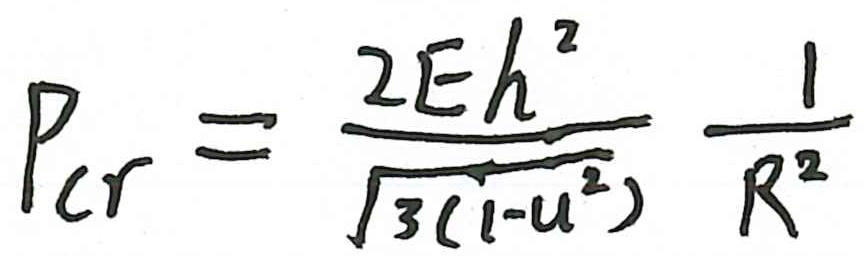 P_{cr} = \frac{2Eh^2}{\sqrt{3(1-u^2)}} \frac{1}{R^2}